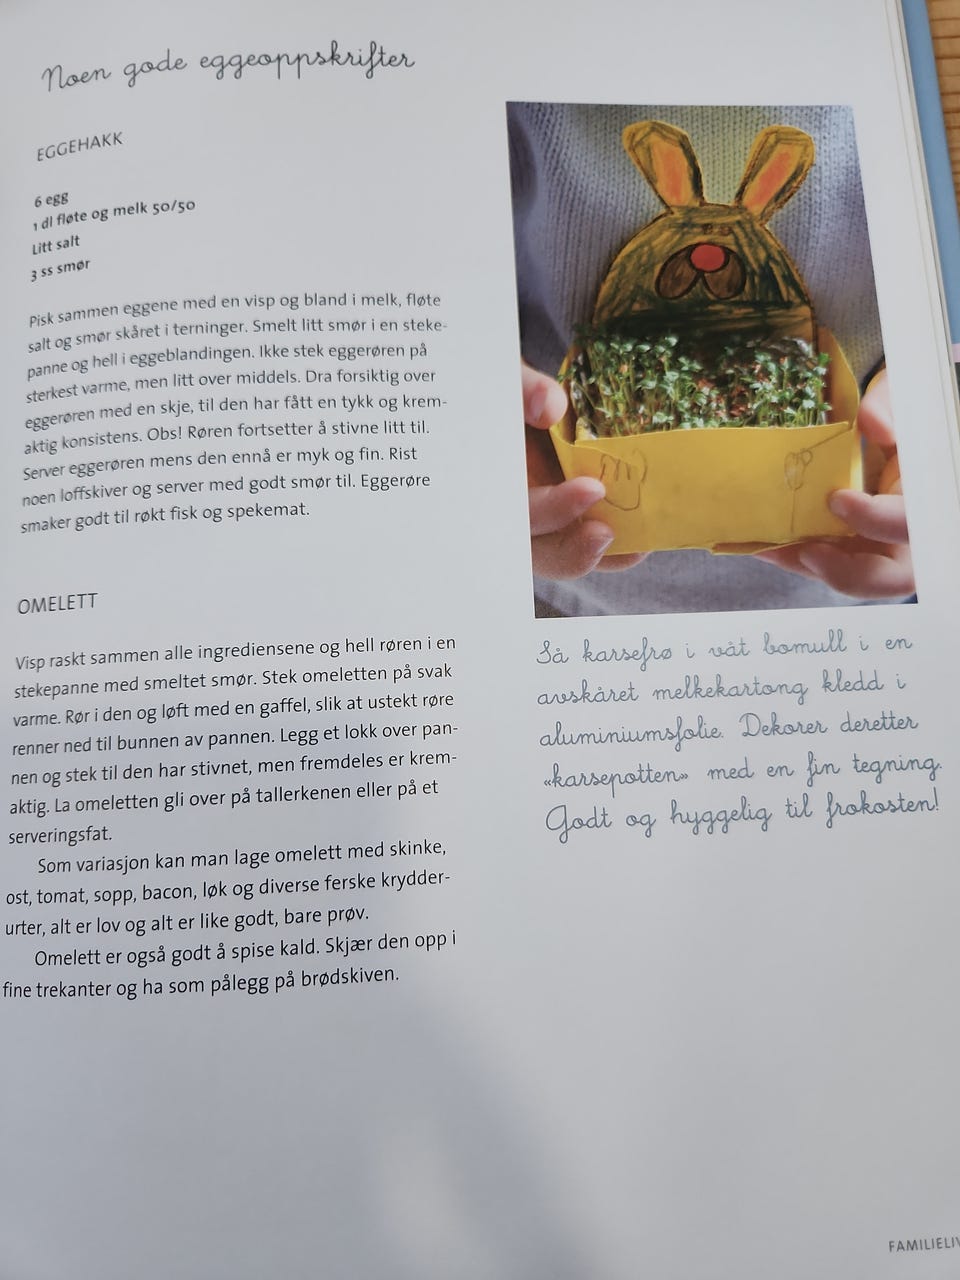 Noen gode eggeoppskrifter
EGGEHAKK
6 egg
1 dl fløte og melk 50/50
Litt salt
3 ss smør
Pisk sammen eggene med en visp og bland i melk, fløte
salt og smør skåret i terninger. Smelt litt smør i en steke-
panne og hell i eggeblandingen. Ikke stek eggerøren på
sterkest varme, men litt over middels. Dra forsiktig over
eggerøren med en skje, til den har fått en tykk og krem-
aktig konsistens. Obs! Røren fortsetter å stivne litt til.
Server eggerøren mens den ennå er myk og fin. Rist
noen loffskiver og server med godt smør til. Eggerøre
smaker godt til røkt fisk og spekemat.
OMELETT
Visp raskt sammen alle ingrediensene og hell røren i en
stekepanne med smeltet smør. Stek omeletten på svak
varme. Rør i den og løft med en gaffel, slik at ustekt røre
renner ned til bunnen av pannen. Legg et lokk over pan-
nen og stek til den har stivnet, men fremdeles er krem-
aktig. La omeletten gli over på tallerkenen eller på et
serveringsfat.
Som variasjon kan man lage omelett med skinke,
ost, tomat, sopp, bacon, løk og diverse ferske krydder-
urter, alt er lov og alt er like godt, bare prøv.
Omelett er også godt å spise kald. Skjær den opp i
fine trekanter og ha som pålegg på brødskiven.
Så karsefrø i våt bomull i en
avskåret melkekartong kledd i
aluminiumsfolie. Dekorer deretter
«karsepotten» med en fin tegning.
Godt og hyggelig til frokosten!
FAMILIELIV